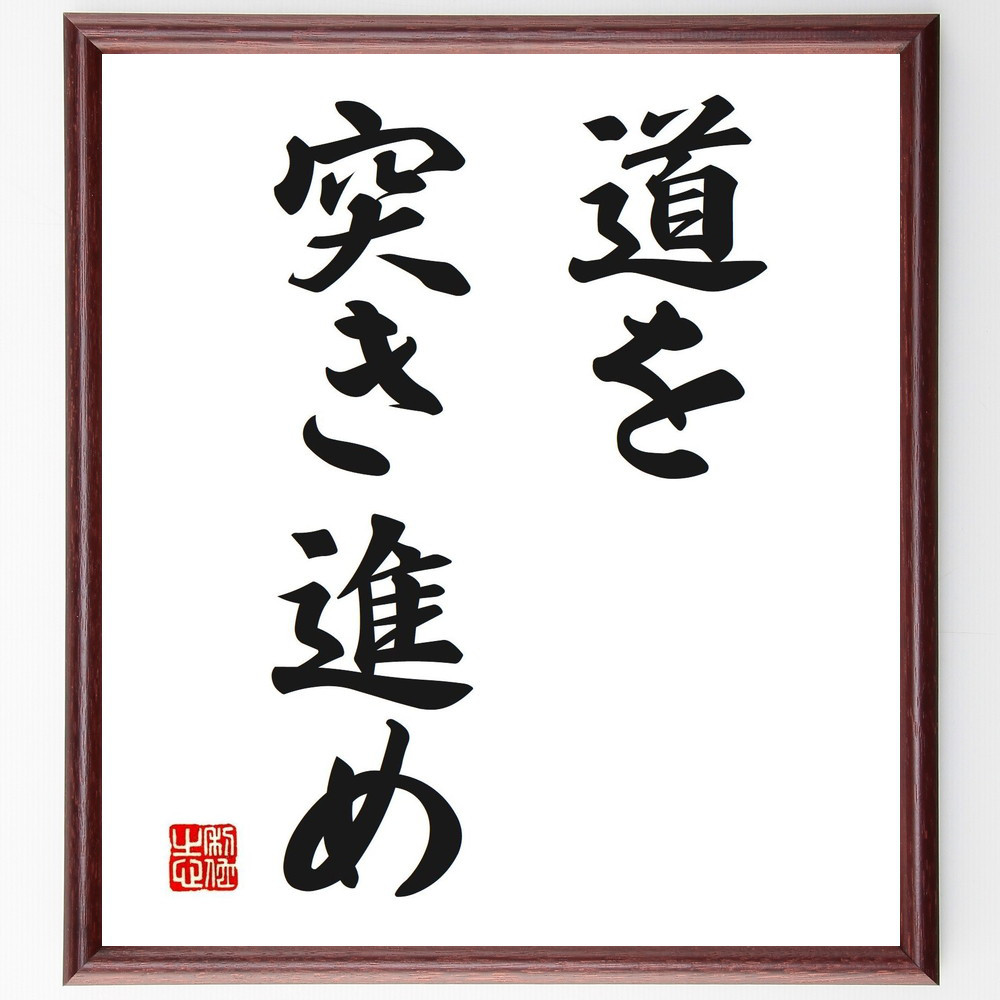 道を
突き進め